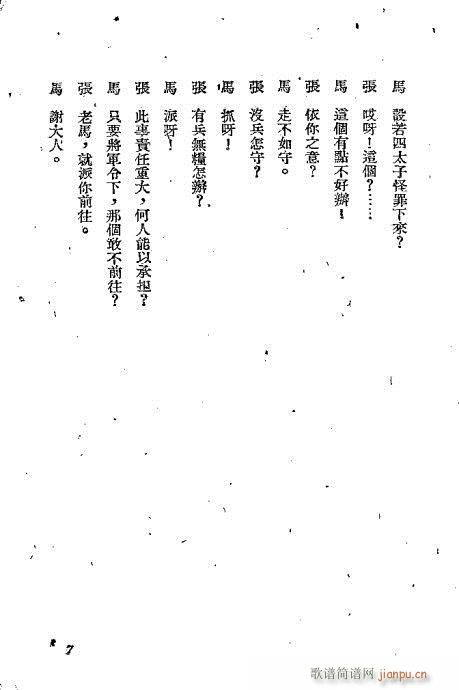 馬 設若四太子怪罪下來?
張 哎呀!這個?……
馬 這個有點不好辦!
張 依你之意?
馬 走不如守。
張 沒兵怎守?
馬 抓呀!
張 有兵無糧怎辦?
馬 派呀!
張 此事責任重大,何人能以承担?
馬 只要將軍令下,那個敢不前往?
張 老馬,就派你前往。
馬 謝大人。
7
歌谱简谱网
jianpu.cn